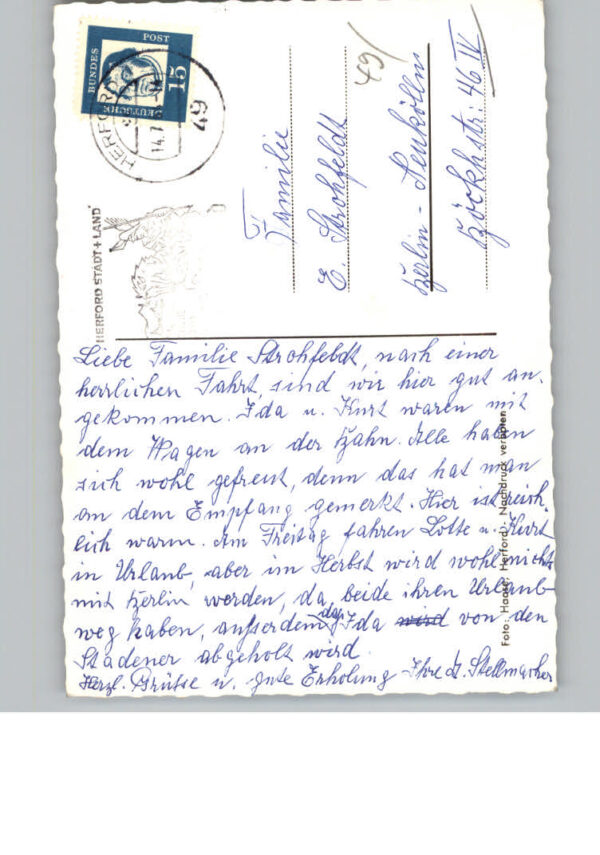 Liebe Familie Strohfeldt, nach einer
herrlichen Fahrt, sind wir hier gut an-
gekommen. Ida u. Kurt waren mit
dem Wagen an der Bahn. Alle haben
sich wohl gefreut, denn das hat man
an dem Empfang gemerkt. Hier ist reich-
lich warm. Am Freitag fahren Lotte u. Kurt
in Urlaub, aber im Herbst wird wohl nichts
mit Berlin werden, da beide ihren Urlaub
weg haben, außerdem daß Ida wird von den
Stadener abgeholt wird.
Herzl. Grüsse u. gute Erholung Ihre
Stellmacher
Familie
E. Strohfeldt
Berlin - Neukölln
Böckhstr. 46 IV
49/
DEUTSCHE BUNDESPOST
15
HERFORD
14.7.
49
HERFORD STADT+LAND
Foto: Haase, Herford, Nachdruck verboten